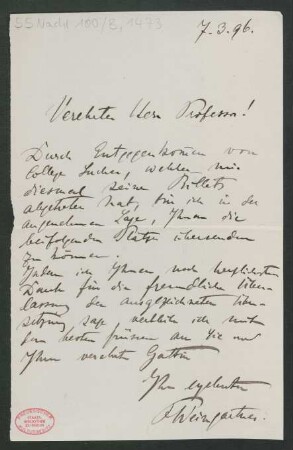 SS Nachl 100/B, 1473
7.3.96.
Verehrter Herr Professor!
Durch Entgegenkommen von
College Sucher, welcher mir
diesmal seine Billets
abgetreten hat, bin ich in der
angenehmen Lage, Ihnen die
beifolgenden Plätze übersenden
zu können.
Indem ich Ihnen noch herzlichsten
Dank für die freundliche Über-
lassung der ausgezeichneten Über-
setzung sage verbleibe ich mit
den besten Grüssen an Sie und
Ihre verehrte Gattin
Ihr ergebenster
FWeingartner.